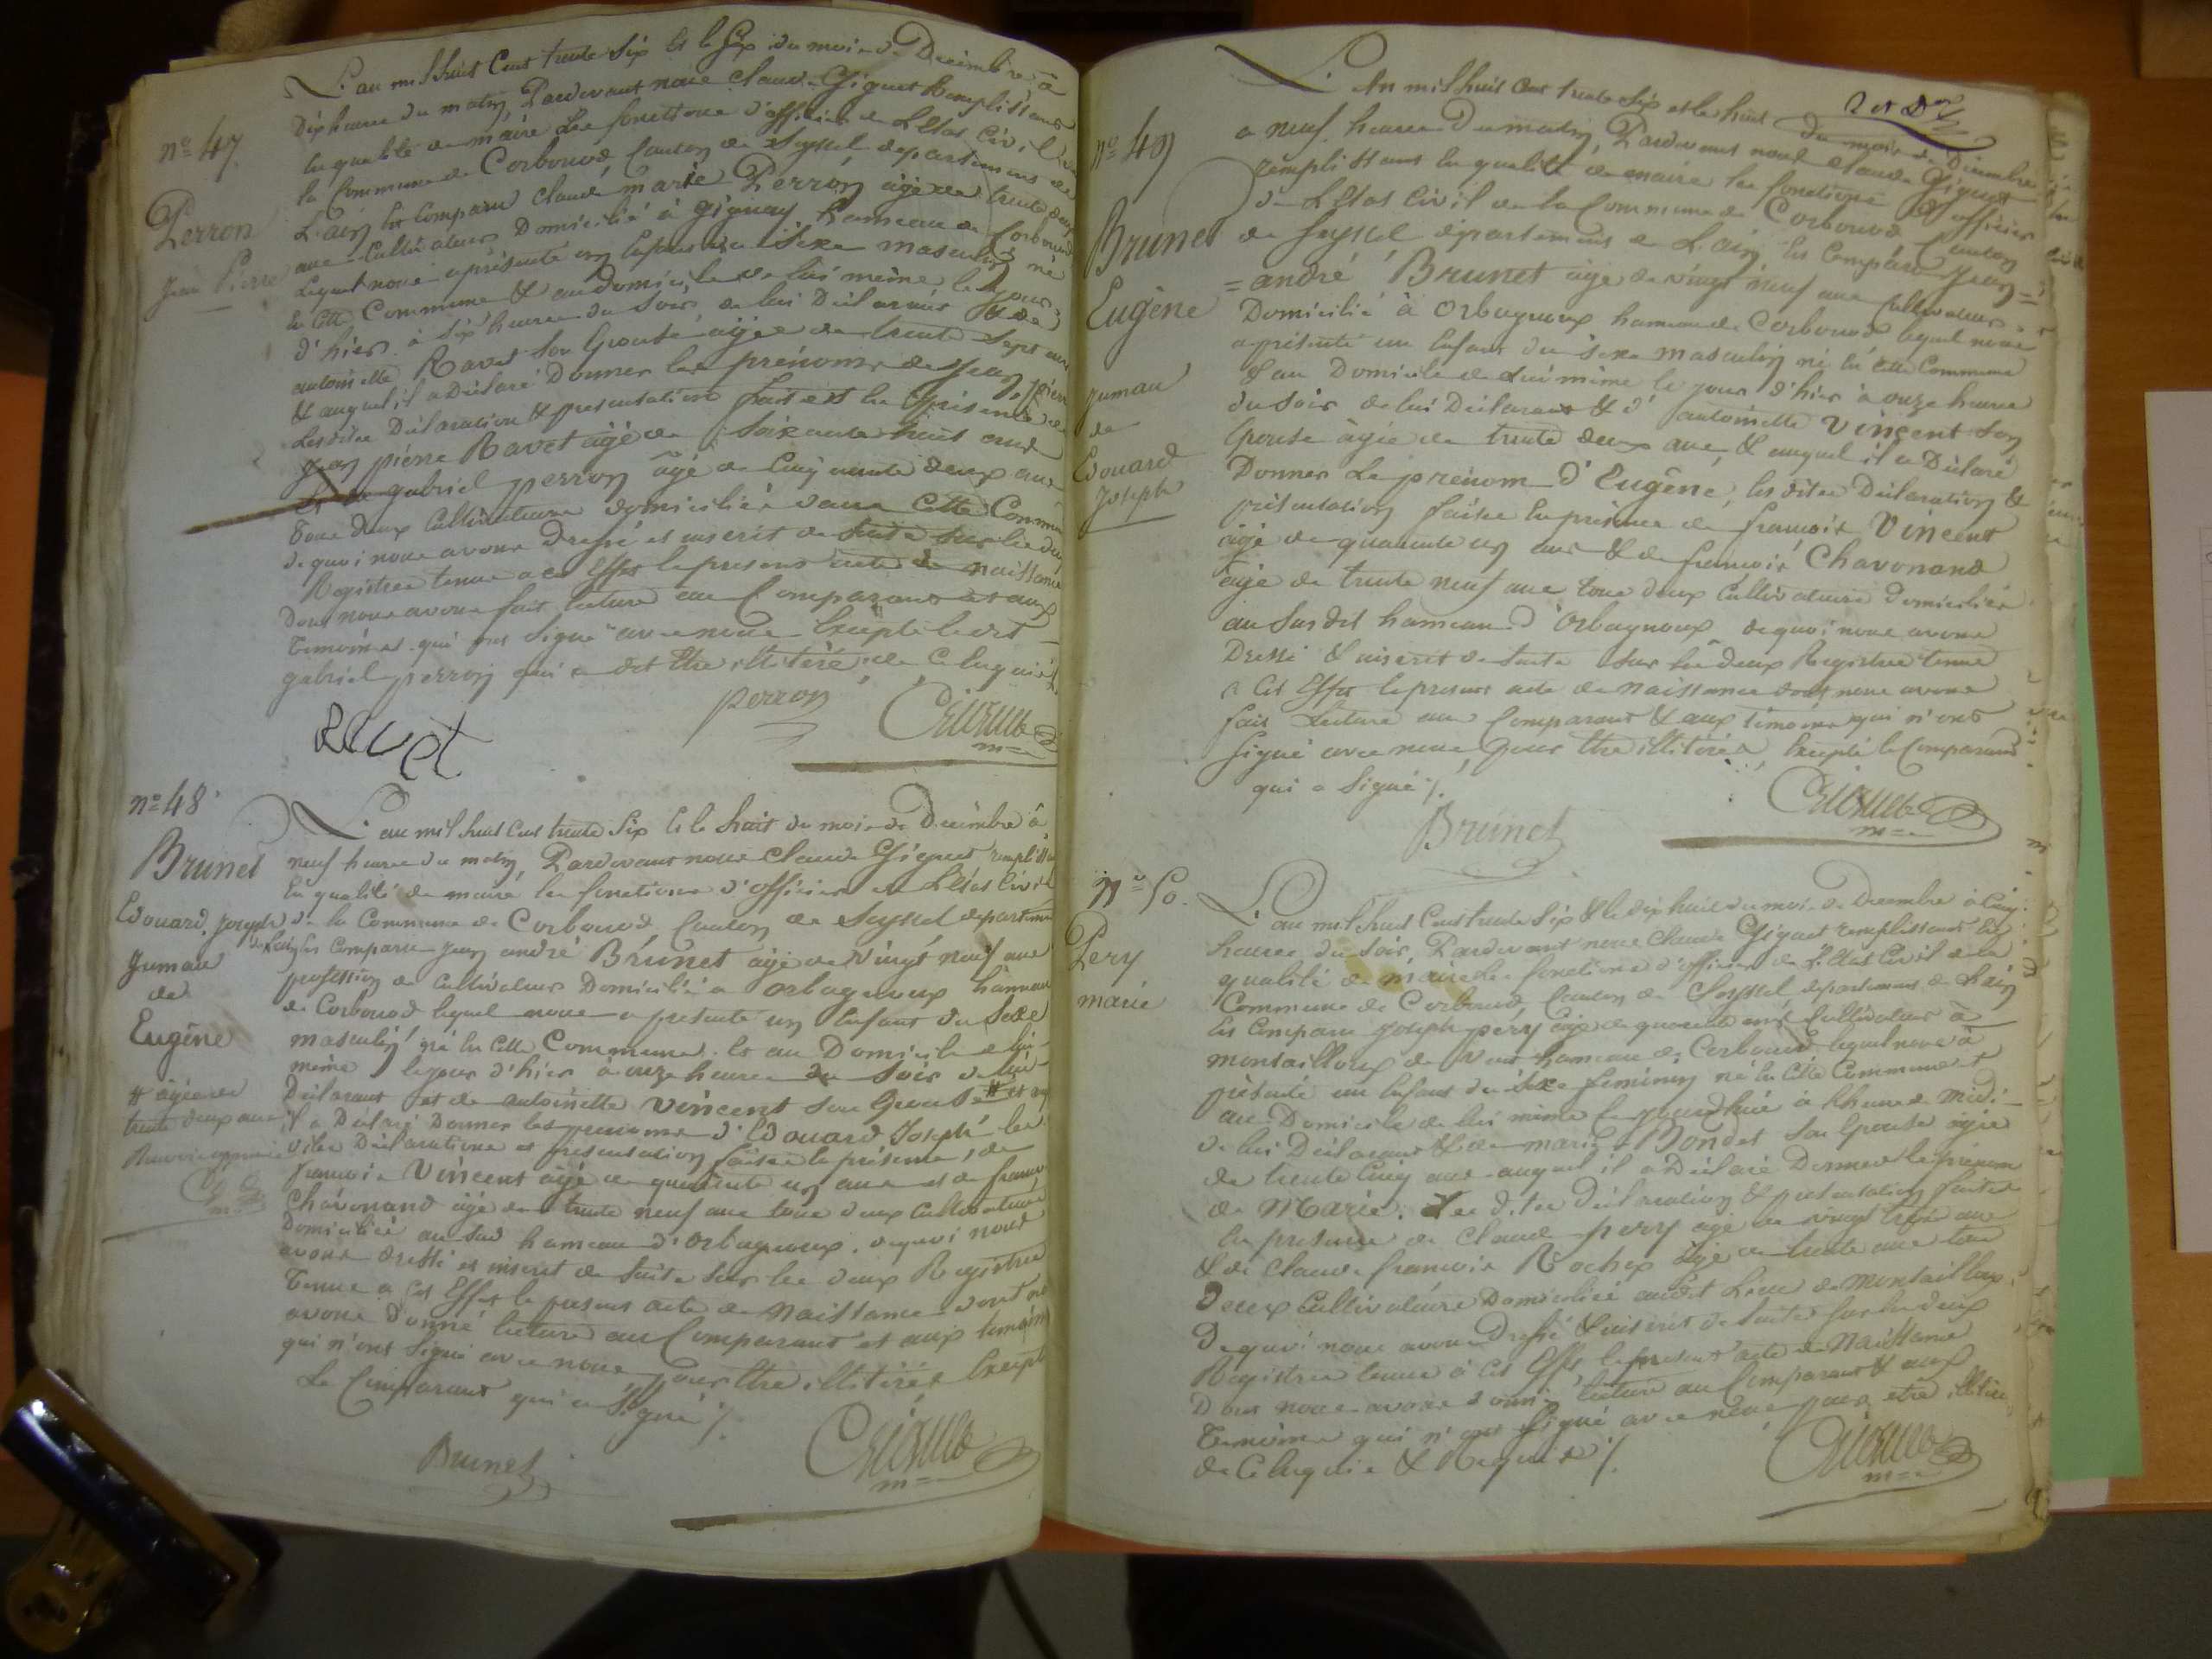 nº 47.
Perron
Jean Pierre
L'an mil huit Cent trente Six Et le Six du mois de Decembre à
Dix heures du matin Pardevant nous Claude Giguet Remplissant
En qualité de maire Les fonctions d'officier de L'Etat Civil de
la Commune de Corbonod, Canton de Seyssel departement de
L'ain Est Comparu Claude marie Perron âgé de trente deux
ans Cultivateur Domicilié à gignay hameau de Corbonod
Lequel nous a présenté un Enfant du Sexe masculin né
En Cette Commune & au domicile de lui même le jour
d'hier à Six heures du Soir de lui Déclarant & de
antoinette Ravet Son Epouse âgée de trente Sept ans
& auquel il a Déclaré Donner les prénoms de Jean pierre
Lesdites Déclaration & presentation faites En présence de
Jean pierre Ravet âgé de Soixante huit ans
gabriel perron âgé de Cinquante deux ans
Tous Deux Cultivateurs domiciliés dans Cette Commune
de quoi nous avons Dressé et inscrit de Suite Sur les deux
Registres tenus a cet Effet le present acte de naissance
Dont nous avons fait lecture au Comparant et aux
Temoins qui ont Signé avec nous Excepté le dit
gabriel perron qui a dit Etre illitéré de Ce Enquis
Ravet perron Giguet
m=e
nº 48
Brunet
Edouard Joseph
Jumau
de
Eugêne
# âgée de
trente deux ans
L'an mil huit Cent trente Six Et le huit du mois de Decembre à
neuf heures du matin, Pardevant nous Claude Giguet remplissant
En qualité de maire les fonctions d'officier de L'Etat Civil
de la Commune de Corbonod Canton de Seyssel departement
de L'ain Est Comparu Jean andré Brunet âgé de Vingt neuf ans
profession de Cultivateur Domicilié à Orbagnoux hameau
de Corbonod lequel nous a présenté un Enfant du Sexe
masculin né En Cette Commune Et au Domicile de lui
même le jour d'hier à onze heures du Soir de lui
Déclarant et de antoinette Vincent Son Epouse #
il a Déclaré Donner les prenoms d'Edouard Joseph les
dites Déclarations et présentation faites En présence, de
francois Vincent âgé de quarante un ans et de francois
Chavonand âgé de trente neuf ans tous deux Cultivateurs
Domiciliés au Sud hameau d'Orbagnoux. dequoi nous
avons dressé et inscrit de Suite Sur les deux Registres
Tenus a Cet Effet le present acte de Naissance dont nous
avons Donné lecture au Comparant et aux temoins
qui n'ont Signé avec nous pour Etre illitérés Excepté
Le Comparant qui a Signé /.
Brunet Giguet
m=e
nº 49
Brunet
Eugêne
Jumau
de
Edouard
Joseph
L'An mil huit Cent trente Six et le huit du mois de Décembre
a neuf heures Du matin, Pardevant nous Claude Giguet
remplissant En qualité de maire les fonctions d'officier
de L'Etat Civil de la Commune de Corbonod Canton
de Seyssel département de L'ain, Est Comparu Jean =
= andré Brunet âgé de vingt neuf ans Cultivateur
Domicilié à Orbagnoux hameau de Corbonod lequel nous
a présenté un Enfant du Sexe masculin né En Cette Commune
& au Domicile de Lui même le jour d'hier à onze heures
du Soir de lui Déclarant & d'antoinette Vincent Son
Epouse âgée de trente deux ans & auquel il a Déclaré
Donner Le prénom d'Eugêne, les dites Déclaration &
présentation faites En présence de francois Vincent
âgé de quarante un ans & de francois Chavonand
âgé de trente neuf ans tous deux Cultivateurs domiciliés
au Susdit hameau d'Orbagnoux dequoi nous avons
Dressé & inscrit de Suite Sur les deux Registres tenus
a Cet Effet le present acte de Naissance dont nous avons
fait Lecture au Comparant & aux témoins qui n'ont
Signé avec nous pour Etre illitérés, Excepté le Comparant
qui a Signé /.
Brunet Giguet
m=e
Nº 50.
Pery
marie
L'an mil huit Cent trente Six & le dix huit du mois de Decembre à Cinq
heures du Soir, Pardevant nous Claude Giguet remplissant En
qualité de maire les fonctions d'officier de L'Etat Civil de la
Commune de Corbonod Canton de Seyssel département de L'ain
Est Comparu Joseph péry âgé de quarante ans Cultivateur à
montailloux hameau de Corbonod lequel nous à
présenté un Enfant du Sexe feminin né En Cette Commune &
au Domicile de lui même aujourd'hui à Lheure de Midi
de lui Déclarant & de marie Bondet Son Epouse âgée
de trente Cinq ans auquel il a Déclaré Donner le prénom
de Marie. Les dites Déclaration & présentation faites
En presence de Claude pery âgé de vingt treize ans
& de Claude francois Rochex âgé de trente ans tous
Deux Cultivateurs Domiciliés audit Lieu de Montailloux
Dequoi nous avons Dressé & inscrit de Suite Sur les deux
Registres tenus à Cet Effet, le present acte de Naissance
Dont nous avons donné lecture au Comparant & aux
Temoins qui n'ont Signé avec nous pour etre illitérés
de Ce Enquis & Requis /.
Giguet
m=e